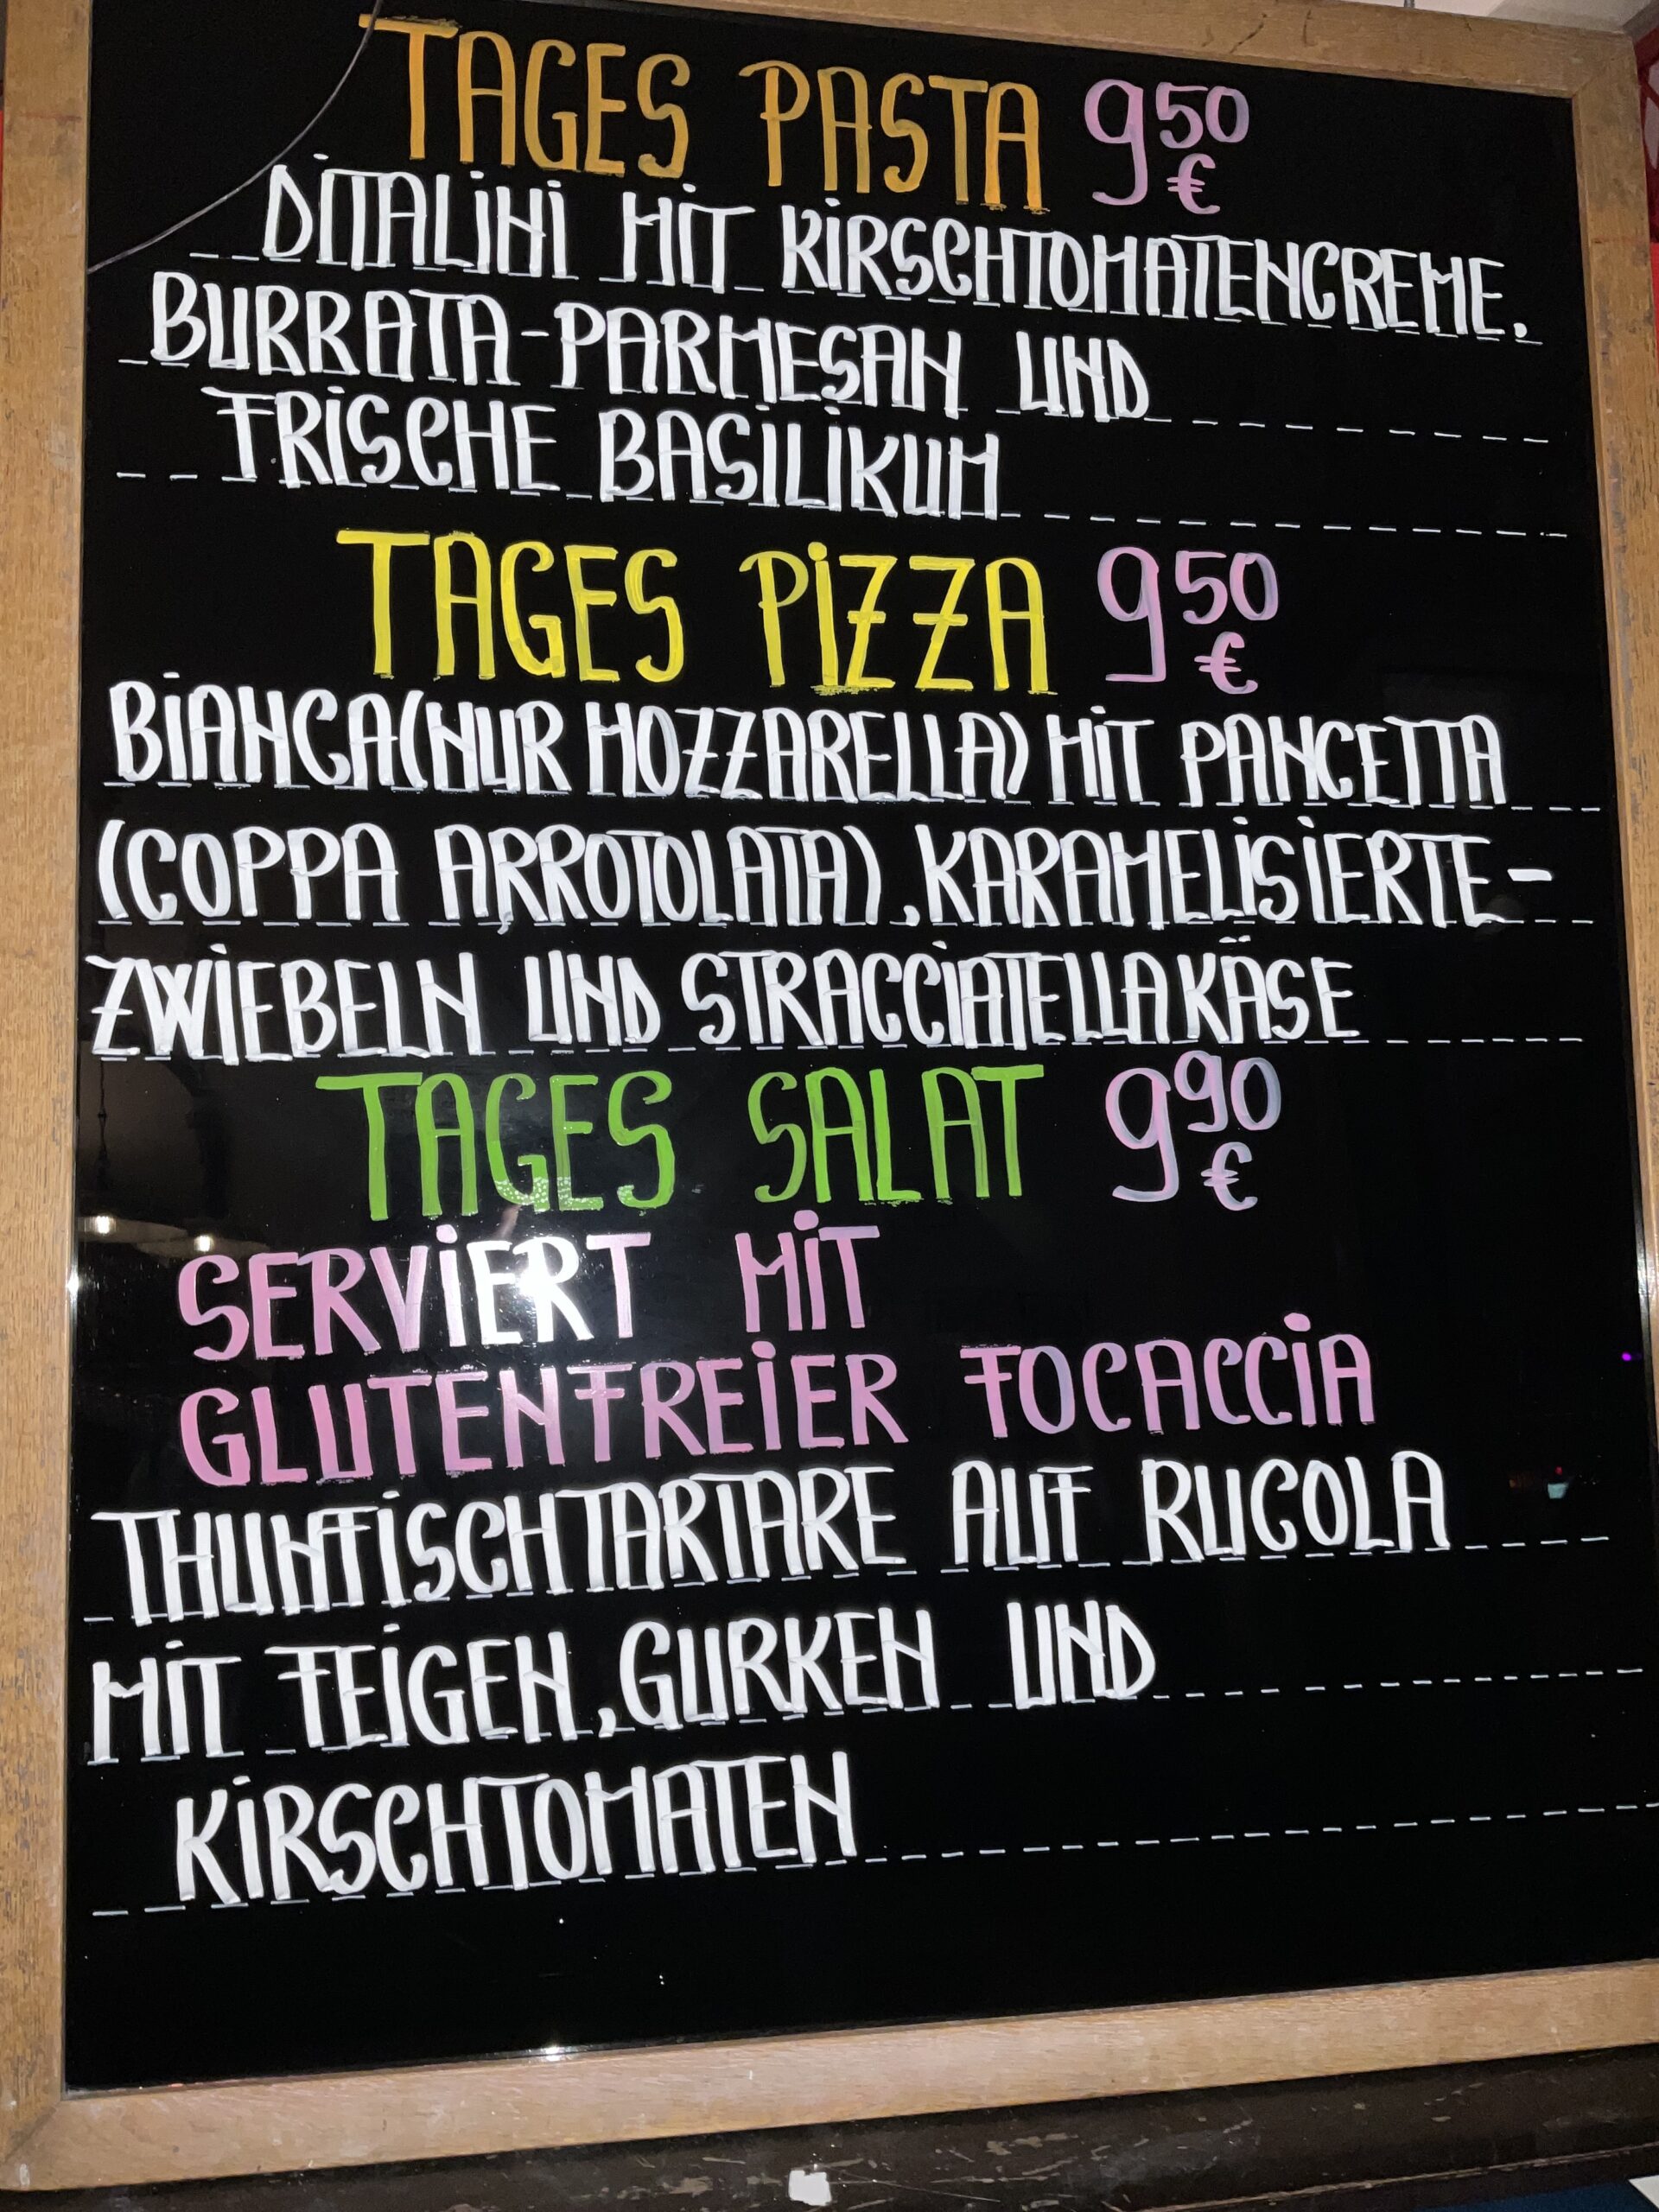 TAGES PASTA 9,50 €
DITALINI MIT KIRSCHTOMATENCREME,
BURRATA-PARMESAN UND
FRISCHE BASILIKUM
TAGES PIZZA 9,50 €
BIANCA(NUR MOZZARELLA) MIT PANCETTA
(COPPA ARROTOLATA),KARAMELISIERTE-
ZWIEBELN UND STRACCIATELLAKÄSE
TAGES SALAT 9,90 €
SERVIERT MIT
GLUTENFREIER FOCACCIA
THUNFISCHTARTARE AUF RUCOLA
MIT FEIGEN,GURKEN UND
KIRSCHTOMATEN